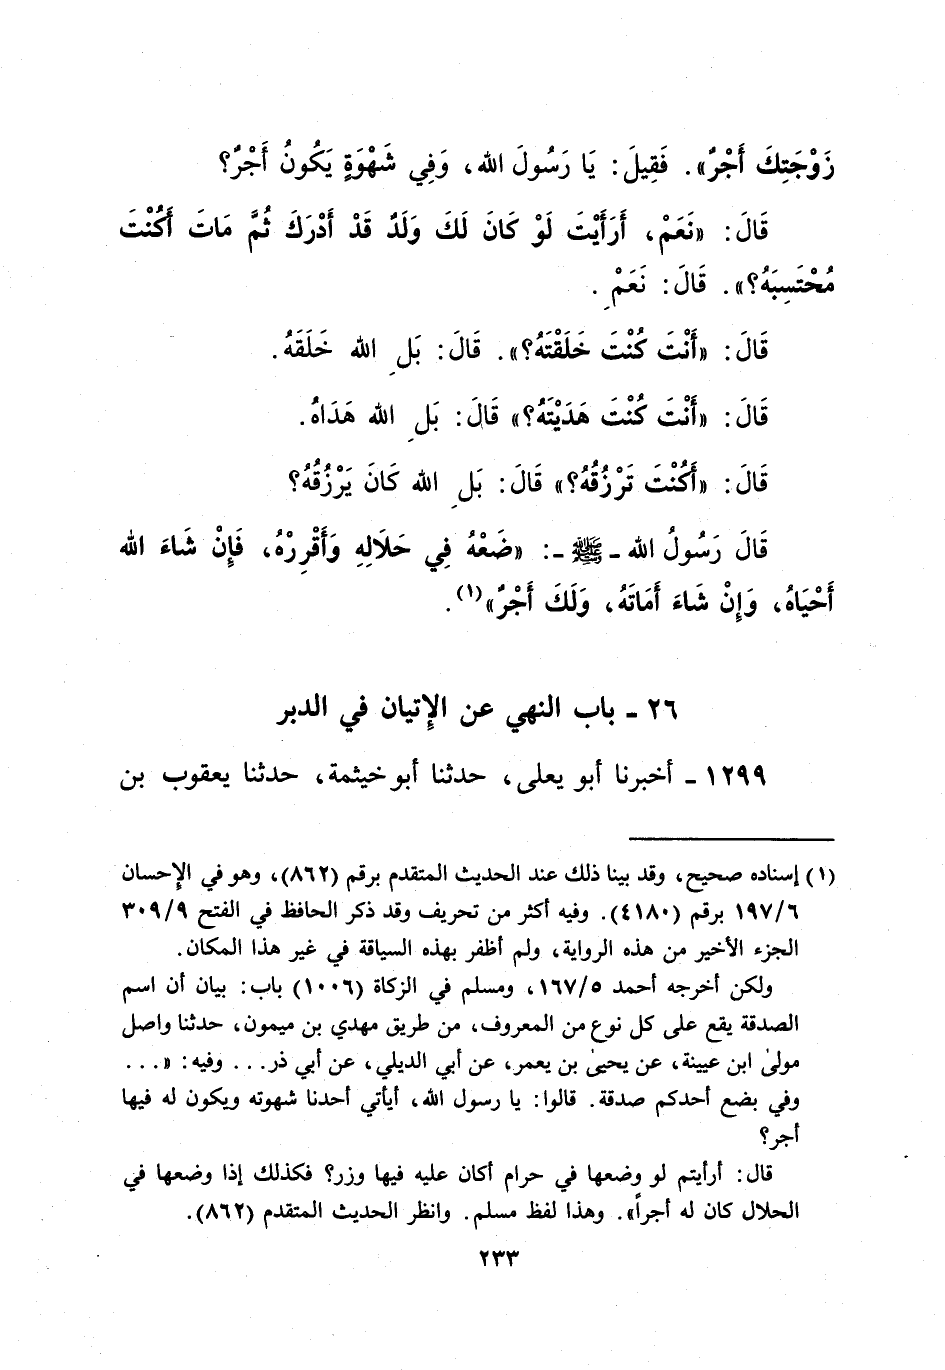 زَوْجَتِكَ أَجْرٌ». فَقِيلَ: يَا رَسُولَ الله، وَفِي شَهْوَةٍ يَكُونُ أَجْرٌ؟
قَالَ: «نَعَمْ، أَرَأَيْتَ لَوْ كَانَ لَكَ وَلَدٌ قَدْ أَدْرَكَ ثُمَّ مَاتَ أَكُنْتَ
مُحْتَسِبَهُ؟». قَالَ: نَعَمْ.
قَالَ: «أَنْتَ كُنْتَ خَلَقْتَهُ؟». قَالَ: بَلِ الله خَلَقَهُ.
قَالَ: «أَنْتَ كُنْتَ هَدَيْتَهُ؟» قَالَ: بَلِ الله هَدَاهُ.
قَالَ: «أَكُنْتَ تَرْزُقُهُ؟» قَالَ: بَلِ الله كَانَ يَرْزُقُهُ؟
قَالَ رَسُولُ الله ـ ﷺ ـ: «ضَعْهُ فِي حَلَالِهِ وَأَقْرِرْهُ، فَإِنْ شَاءَ الله
أَحْيَاهُ، وَإِنْ شَاءَ أَمَاتَهُ، وَلَكَ أَجْرٌ»(١).
٢٦ ـ باب النهي عن الإتيان في الدبر
١٢٩٩ ـ أخبرنا أبو يعلى، حدثنا أبو خيثمة، حدثنا يعقوب بن
(١) إسناده صحيح، وقد بينا ذلك عند الحديث المتقدم برقم (٨٦٢)، وهو في الإحسان
١٩٧/٦ برقم (٤١٨٠). وفيه أكثر من تحريف وقد ذكر الحافظ في الفتح ٣٠٩/٩
الجزء الأخير من هذه الرواية، ولم أظفر بهذه السياقة في غير هذا المكان.
ولكن أخرجه أحمد ١٦٧/٥، ومسلم في الزكاة (١٠٠٦) باب: بيان أن اسم
الصدقة يقع على كل نوع من المعروف، من طريق مهدي بن ميمون، حدثنا واصل
مولىٰ ابن عيينة، عن يحيىٰ بن يعمر، عن أبي الديلي، عن أبي ذر... وفيه: «...
وفي بضع أحدكم صدقة. قالوا: يا رسول الله، أيأتي أحدنا شهوته ويكون له فيها
أجر؟
قال: أرأيتم لو وضعها في حرام أكان عليه فيها وزر؟ فكذلك إذا وضعها في
الحلال كان له أجراً». وهذا لفظ مسلم. وانظر الحديث المتقدم (٨٦٢).
٢٣٣